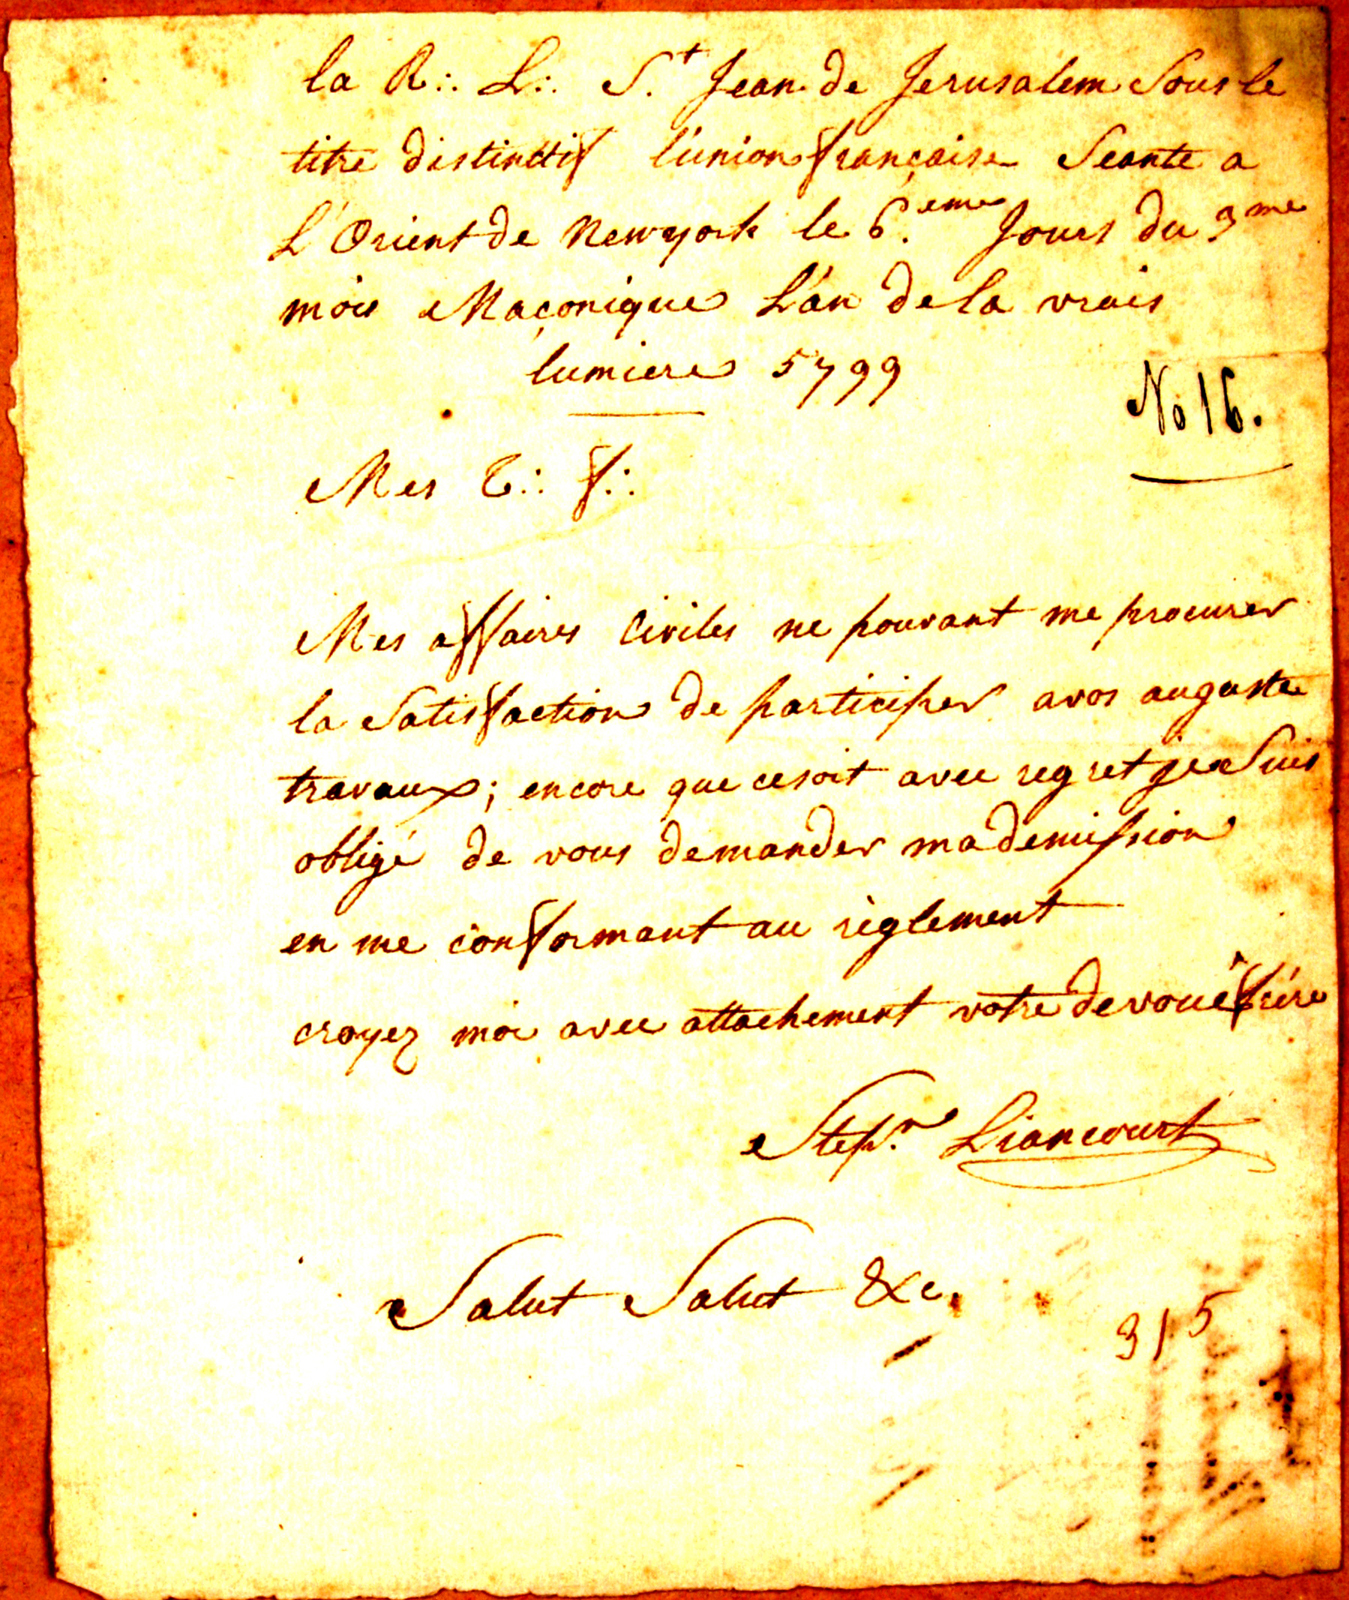 la R∴ L∴ S.t Jean de Jerusalem Sous le
titre distinctif l'union française Seante a
L'Orient de Newyork le 6.eme Jours du 3me
mois Maçonique L'an de la vrais
lumiere 5799
No 16.
Mes T∴ f∴
Mes affaires Civiles ne pouvant me procurer
la Satisfaction de participer avos auguste
travaux; encore que cesoit avec regret je Suis
obligé de vous demander mademission
en me conformant au règlement
croyez moi avec attachement votre devoué frére
Step.n Liancourt
Salut Salut &c.
315